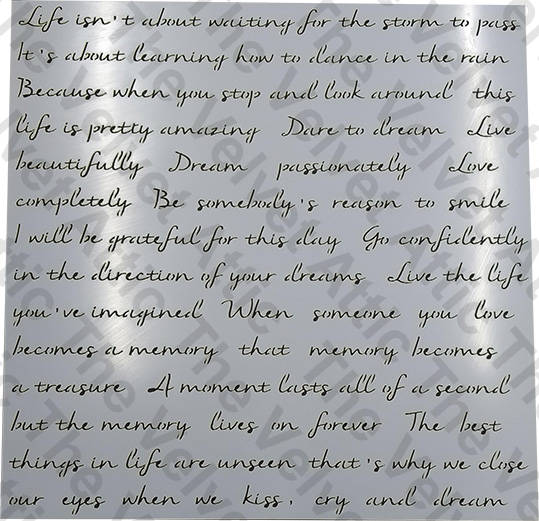 Life isn't about waiting for the storm to pass
It's about learning how to dance in the rain
Because when you stop and look around this
life is pretty amazing Dare to dream Live
beautifully Dream passionately Love
completely Be somebody's reason to smile
I will be grateful for this day Go confidently
in the direction of your dreams Live the life
you've imagined When someone you love
becomes a memory that memory becomes
a treasure A moment lasts all of a second
but the memory lives on forever The best
things in life are unseen that's why we close
our eyes when we kiss, cry and dream
The Velvet Attic